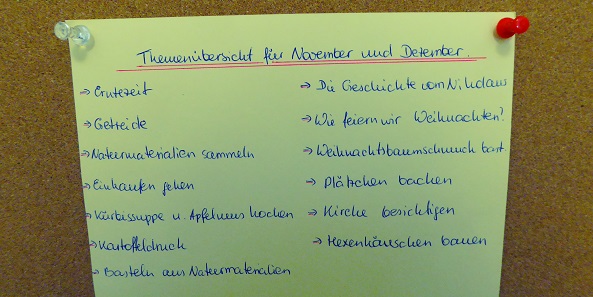 Themenübersicht für November und Dezember.
→ Erntezeit
→ Getreide
→ Naturmaterialien sammeln
→ Einkaufen gehen
→ Kürbissuppe u. Apfelmus kochen
→ Kartoffeldruck
→ Basteln aus Naturmaterialien
→ Die Geschichte vom Nikolaus
→ Wie feiern wir Weihnachten?
→ Weihnachtsbaumschmuck bast
→ Plätzchen backen
→ Kirche besichtigen
→ Hexenhäuschen bauen